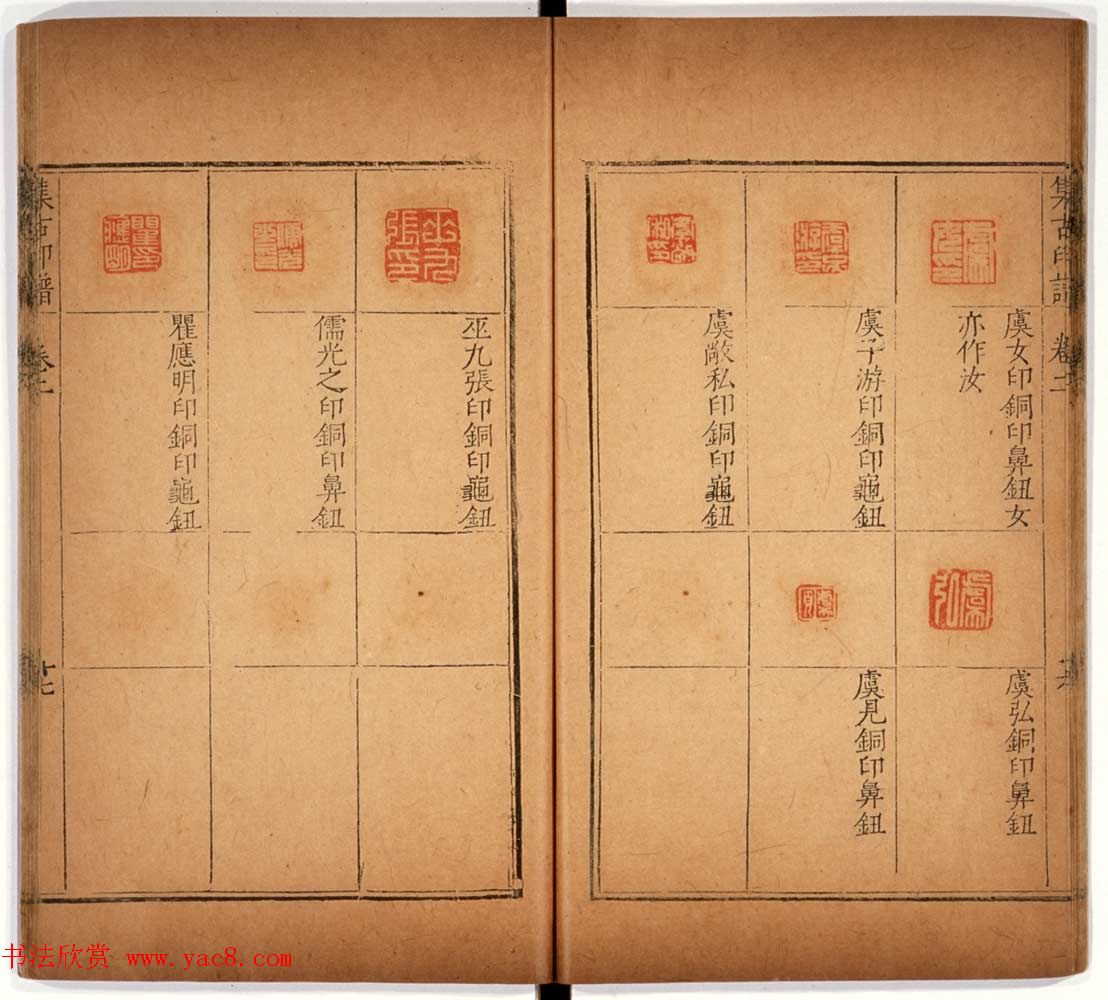 集古印譜 卷二
虞女印銅印鼻鈕女
亦作汝
虞子游印銅印龜鈕
虞敞私印銅印龜鈕
虞弘銅印鼻鈕
虞弘
虞見銅印鼻鈕
巫九張印銅印龜鈕
巫九張印
儒光之印銅印鼻鈕
瞿應明印銅印龜鈕
瞿應明印
集古印譜 卷二
廿七
书法欣赏 www.yac8.com